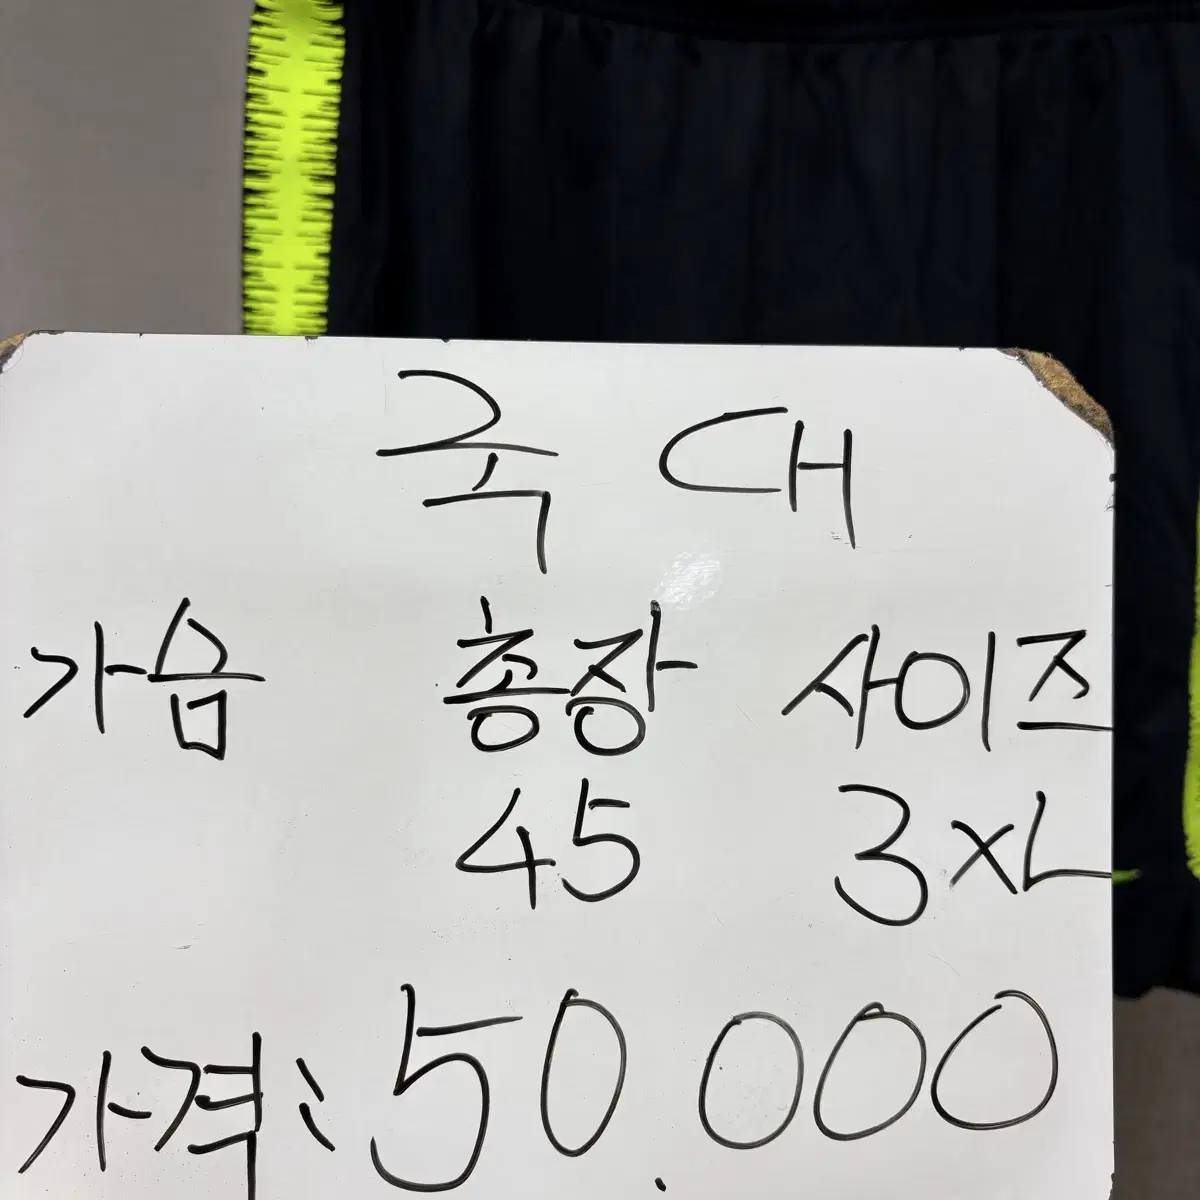 국대
가슴 총장 사이즈
45 3XL
가격: 50.000